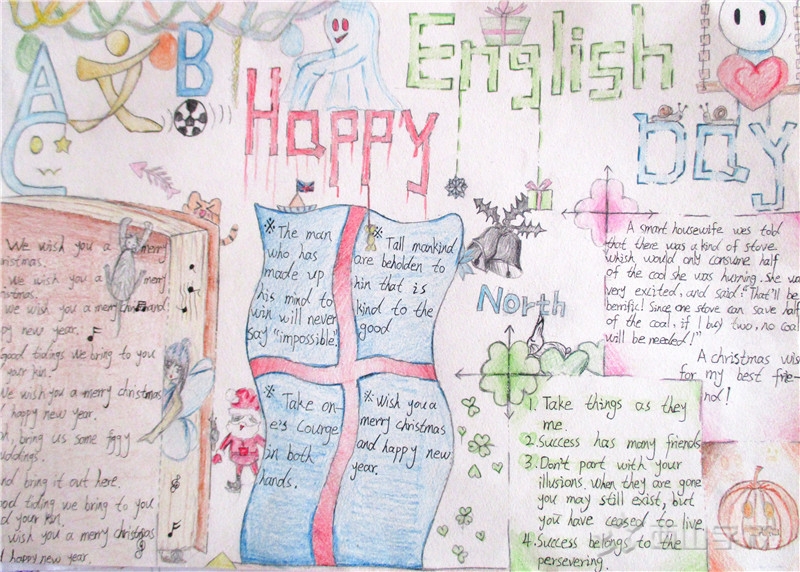 English
Happy
Day
A B C
We wish you a merry
christmas.
We wish you a merry
We wish you a merry christmas and
happy new year.
good tidings we bring to you
your kin.
We wish you a merry christmas
happy new year.
bring us some figgy
puddings.
bring it out here.
good tiding we bring to you
your kin.
wish you a merry christmas
happy new year.
※The man
who has
made up
his mind to
win will never
say "impossible."
※Tall mankind
are beholden to
him that is
kind to the
good
※Take on-
e's courge
in both
hands.
※Wish you a
merry christmas
and happy new
year.
North
A smart housewife was told
that there was a kind of stove
which would only consume half
of the coal she was burning. She was
very excited, and said: "That'll be
terrific! Since one stove can save half
of the coal, if I buy two, no coal
will be needed!"
A christmas wish
for my best frie-
nd!
1. Take things as they
me.
2. Success has many friends
3. Don't part with your
illusions. when they are gone
you may still exist, but
you have ceased to live
4. Success belongs to the
persevering.